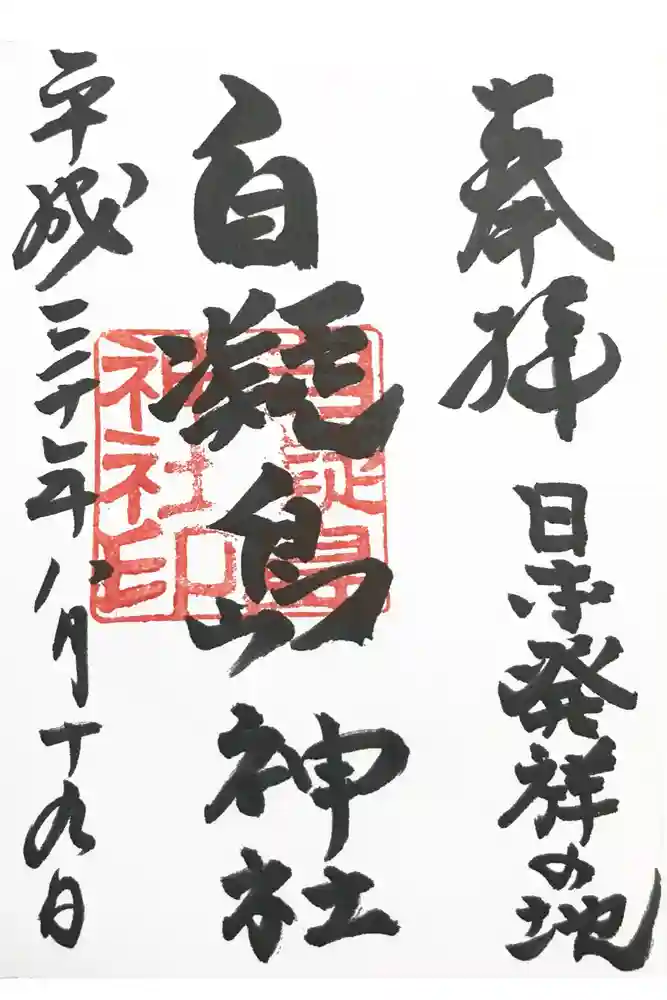 奉拝
日本発祥の地
自凝島神社
自凝島神社印
平成三十年八月十九日